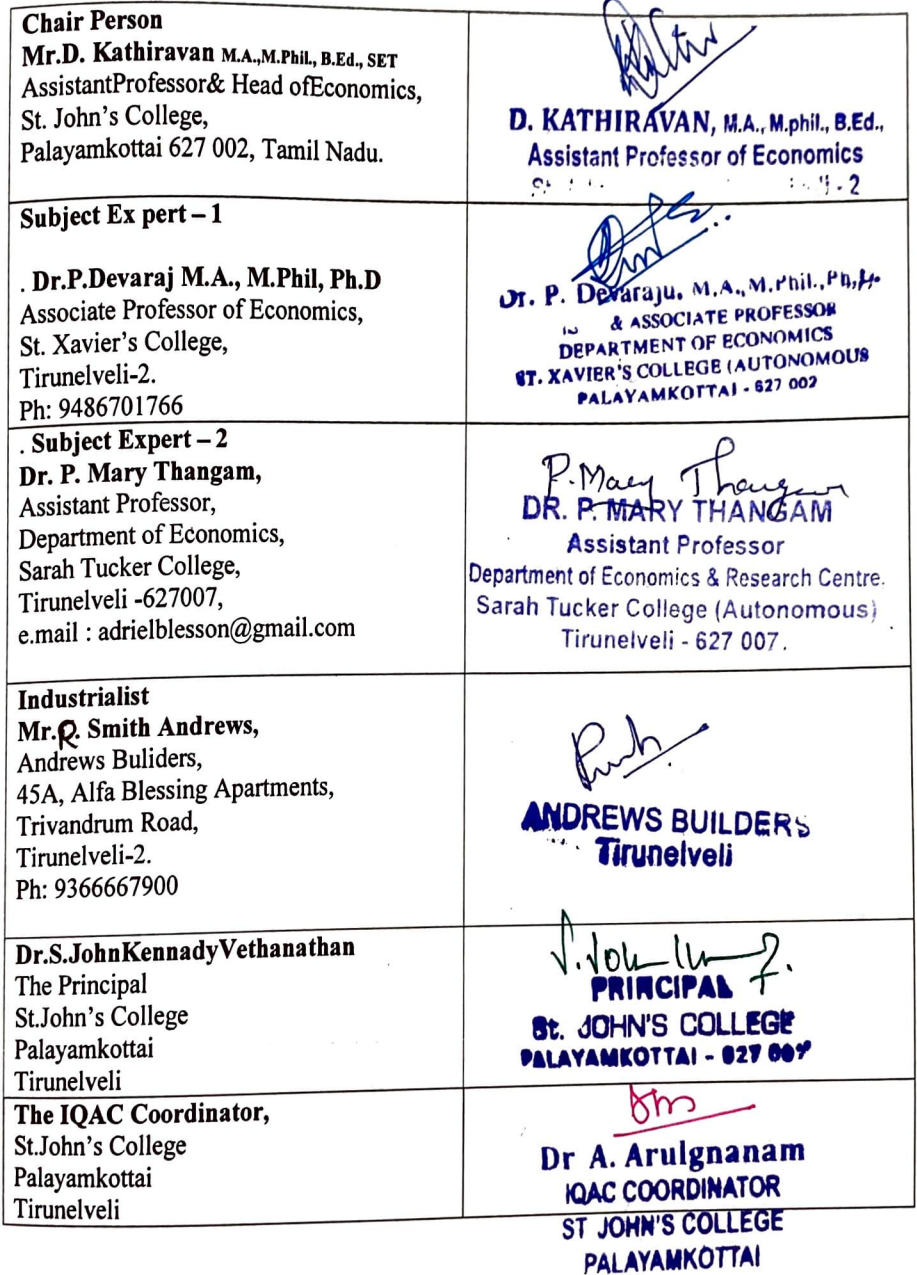 Chair Person
Mr.D. Kathiravan M.A.,M.Phil., B.Ed., SET
AssistantProfessor& Head ofEconomics,
St. John's College,
Palayamkottai 627 002, Tamil Nadu.
D. KATHIRAVAN, M.A., M.phil., B.Ed.,
Assistant Professor of Economics
Subject Ex pert – 1
. Dr.P.Devaraj M.A., M.Phil, Ph.D
Associate Professor of Economics,
St. Xavier's College,
Tirunelveli-2.
Ph: 9486701766
Dr. P. Devaraju, M.A., M.Phil., Ph.D.
& ASSOCIATE PROFESSOR
DEPARTMENT OF ECONOMICS
ST. XAVIER'S COLLEGE (AUTONOMOUS
PALAYAMKOTTAI - 627 002
. Subject Expert – 2
Dr. P. Mary Thangam,
Assistant Professor,
Department of Economics,
Sarah Tucker College,
Tirunelveli -627007,
e.mail : adrielblesson@gmail.com
P. Mary Thangam
DR. P. MARY THANGAM
Assistant Professor
Department of Economics & Research Centre.
Sarah Tucker College (Autonomous)
Tirunelveli - 627 007.
Industrialist
Mr.R. Smith Andrews,
Andrews Buliders,
45A, Alfa Blessing Apartments,
Trivandrum Road,
Tirunelveli-2.
Ph: 9366667900
ANDREWS BUILDERS
Tirunelveli
Dr.S.JohnKennadyVethanathan
The Principal
St.John's College
Palayamkottai
Tirunelveli
PRINCIPAL
St. JOHN'S COLLEGE
PALAYAMKOTTAI - 627 002
The IQAC Coordinator,
St.John's College
Palayamkottai
Tirunelveli
Dr A. Arulgnanam
IQAC COORDINATOR
ST JOHN'S COLLEGE
PALAYAMKOTTAI